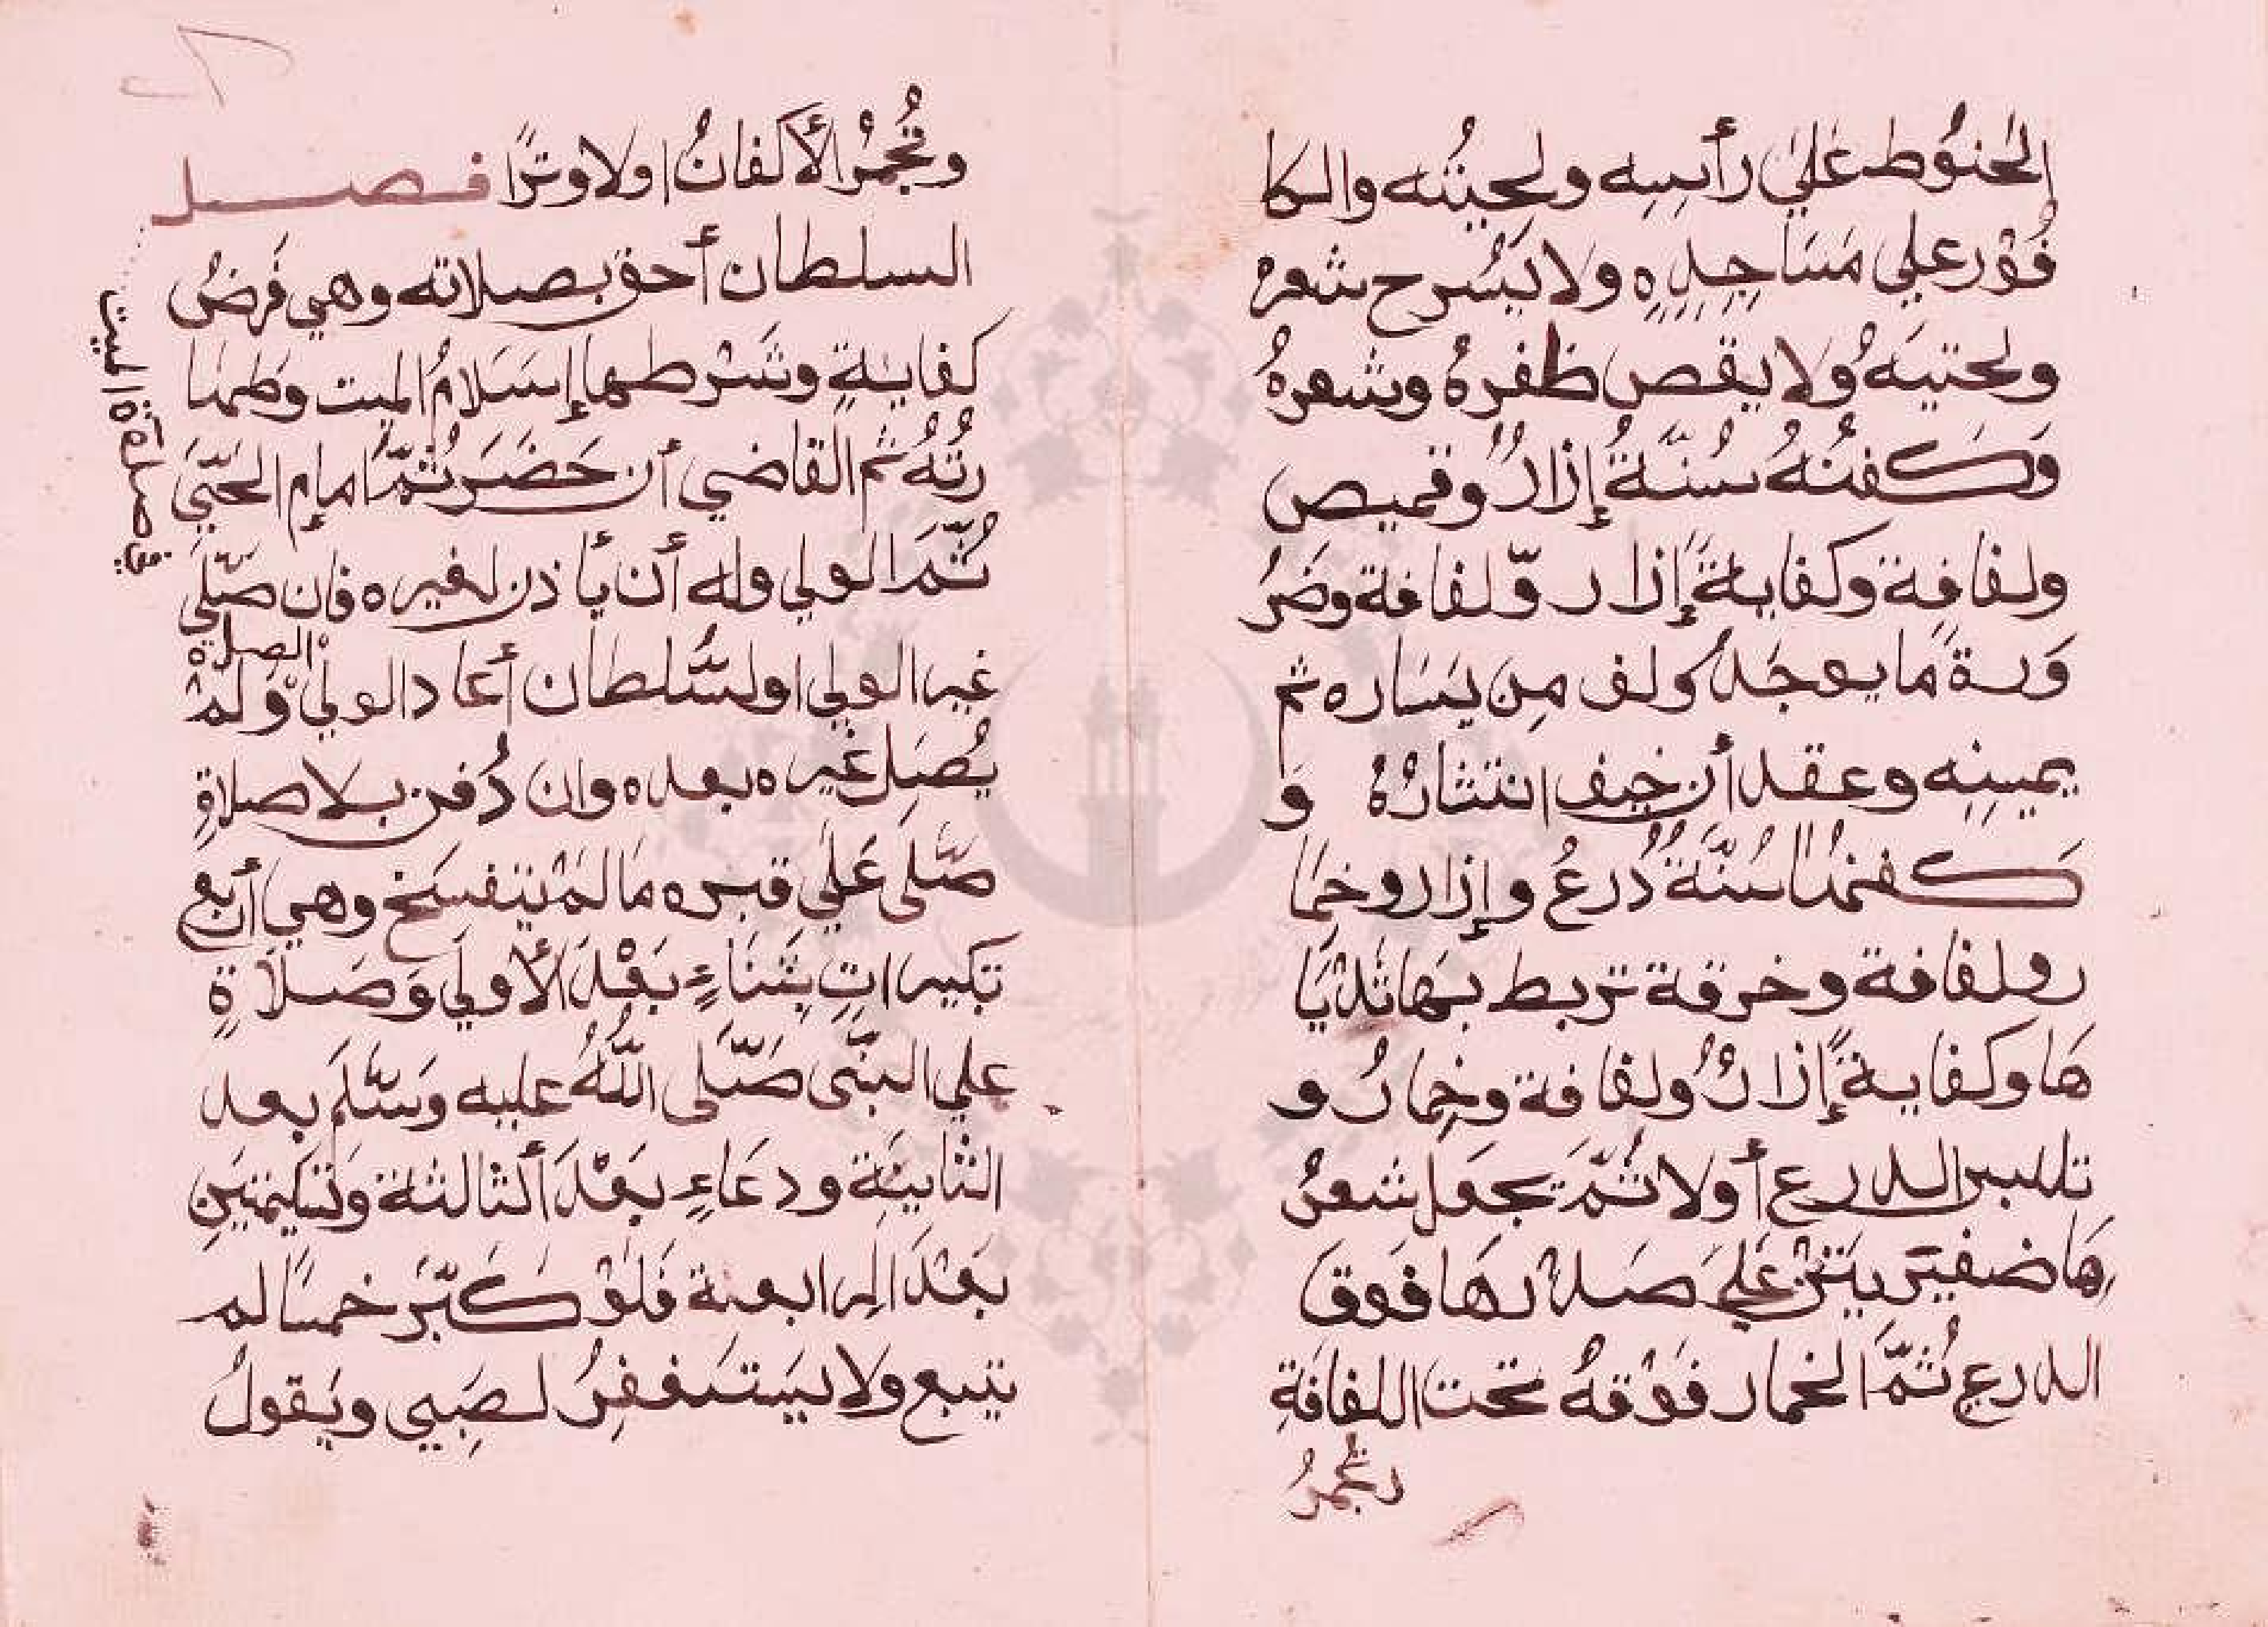 الحَنُوط عَلَى رأسِه ولحيتُه والكا
فُوْر علي مَسَاجِدِهِ ولا يُسْرح شعره
ولحتيَهُ ولا يقص ظفرهُ وشعرهُ
وَكفنُهُ سُنّةُ إزارُ وقميص
ولفافِة وكفاية إزار وّلفافة وضَرُ
وَرة مَا يوجَد ولف مِن يَسَاره ثم
يمينِه وعقد أن خيف انتثارُهُ وَ
كفنُها سُنّةُ دُرعُ وإزار وخمَا
ر ولفافة وخرقة تربط بهَا ثدْيَا
هَا وكفاية إزارُ ولفافة وخِمارُ و
تلبس الدرع أولا ثُمّ يجعَل شعرُ
هَا ضفيَرتيَنْ عَلَيَ صَدْرهَا فوَق
الدرع ثُمَّ الخمار فَوْقهُ تحت اللفافَةِ
وتجمرُ
وتُجمْرُ الأكفانُ اولا وترًا فصل
السلطان أحق بصلاته وهي فَرضُ
كفايةٍ وشَرْطها إسَلامُ الميت وطها
رتُهُ ثم القاضي أن حَضَرَ ثُمّ امام الحَيّ
ثُمّ الولي وله أن يأذن لغيره فان صَلّي
غير الولي اولسُّلطان أعاد الولي الصلاة وَلمْ
يُصَلِ غيره بعده وان دُفن بلا صلاةٍ
صَلّى عَلَي قبره مَا لمْ يتفسَخ وهي أربع
تكبيراتٍ بثَنَاءٍ بَعْدَ الأولي وَصَلاَةٍ
علي النبَّى صَلّى اللّهُ عليه وَسَلّمَ بعد
الثانيَة ودعَاءٍ بَعْدَ ألثالثة وَتسليمتيَنِ
بَعْدَ الرابعة فَلوْ كَبّرَ خمسًا لم
يتبع ولا يَستغفِرُ لصَبِيي ويَقولُ
في صلاة الميت